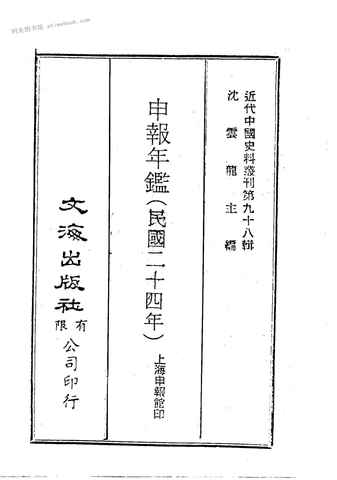 近代中國史料叢刊第九十八輯
沈雲龍主編
申報年鑑(民國二十四年)
上海申報館印
文海出版社有限公司印行